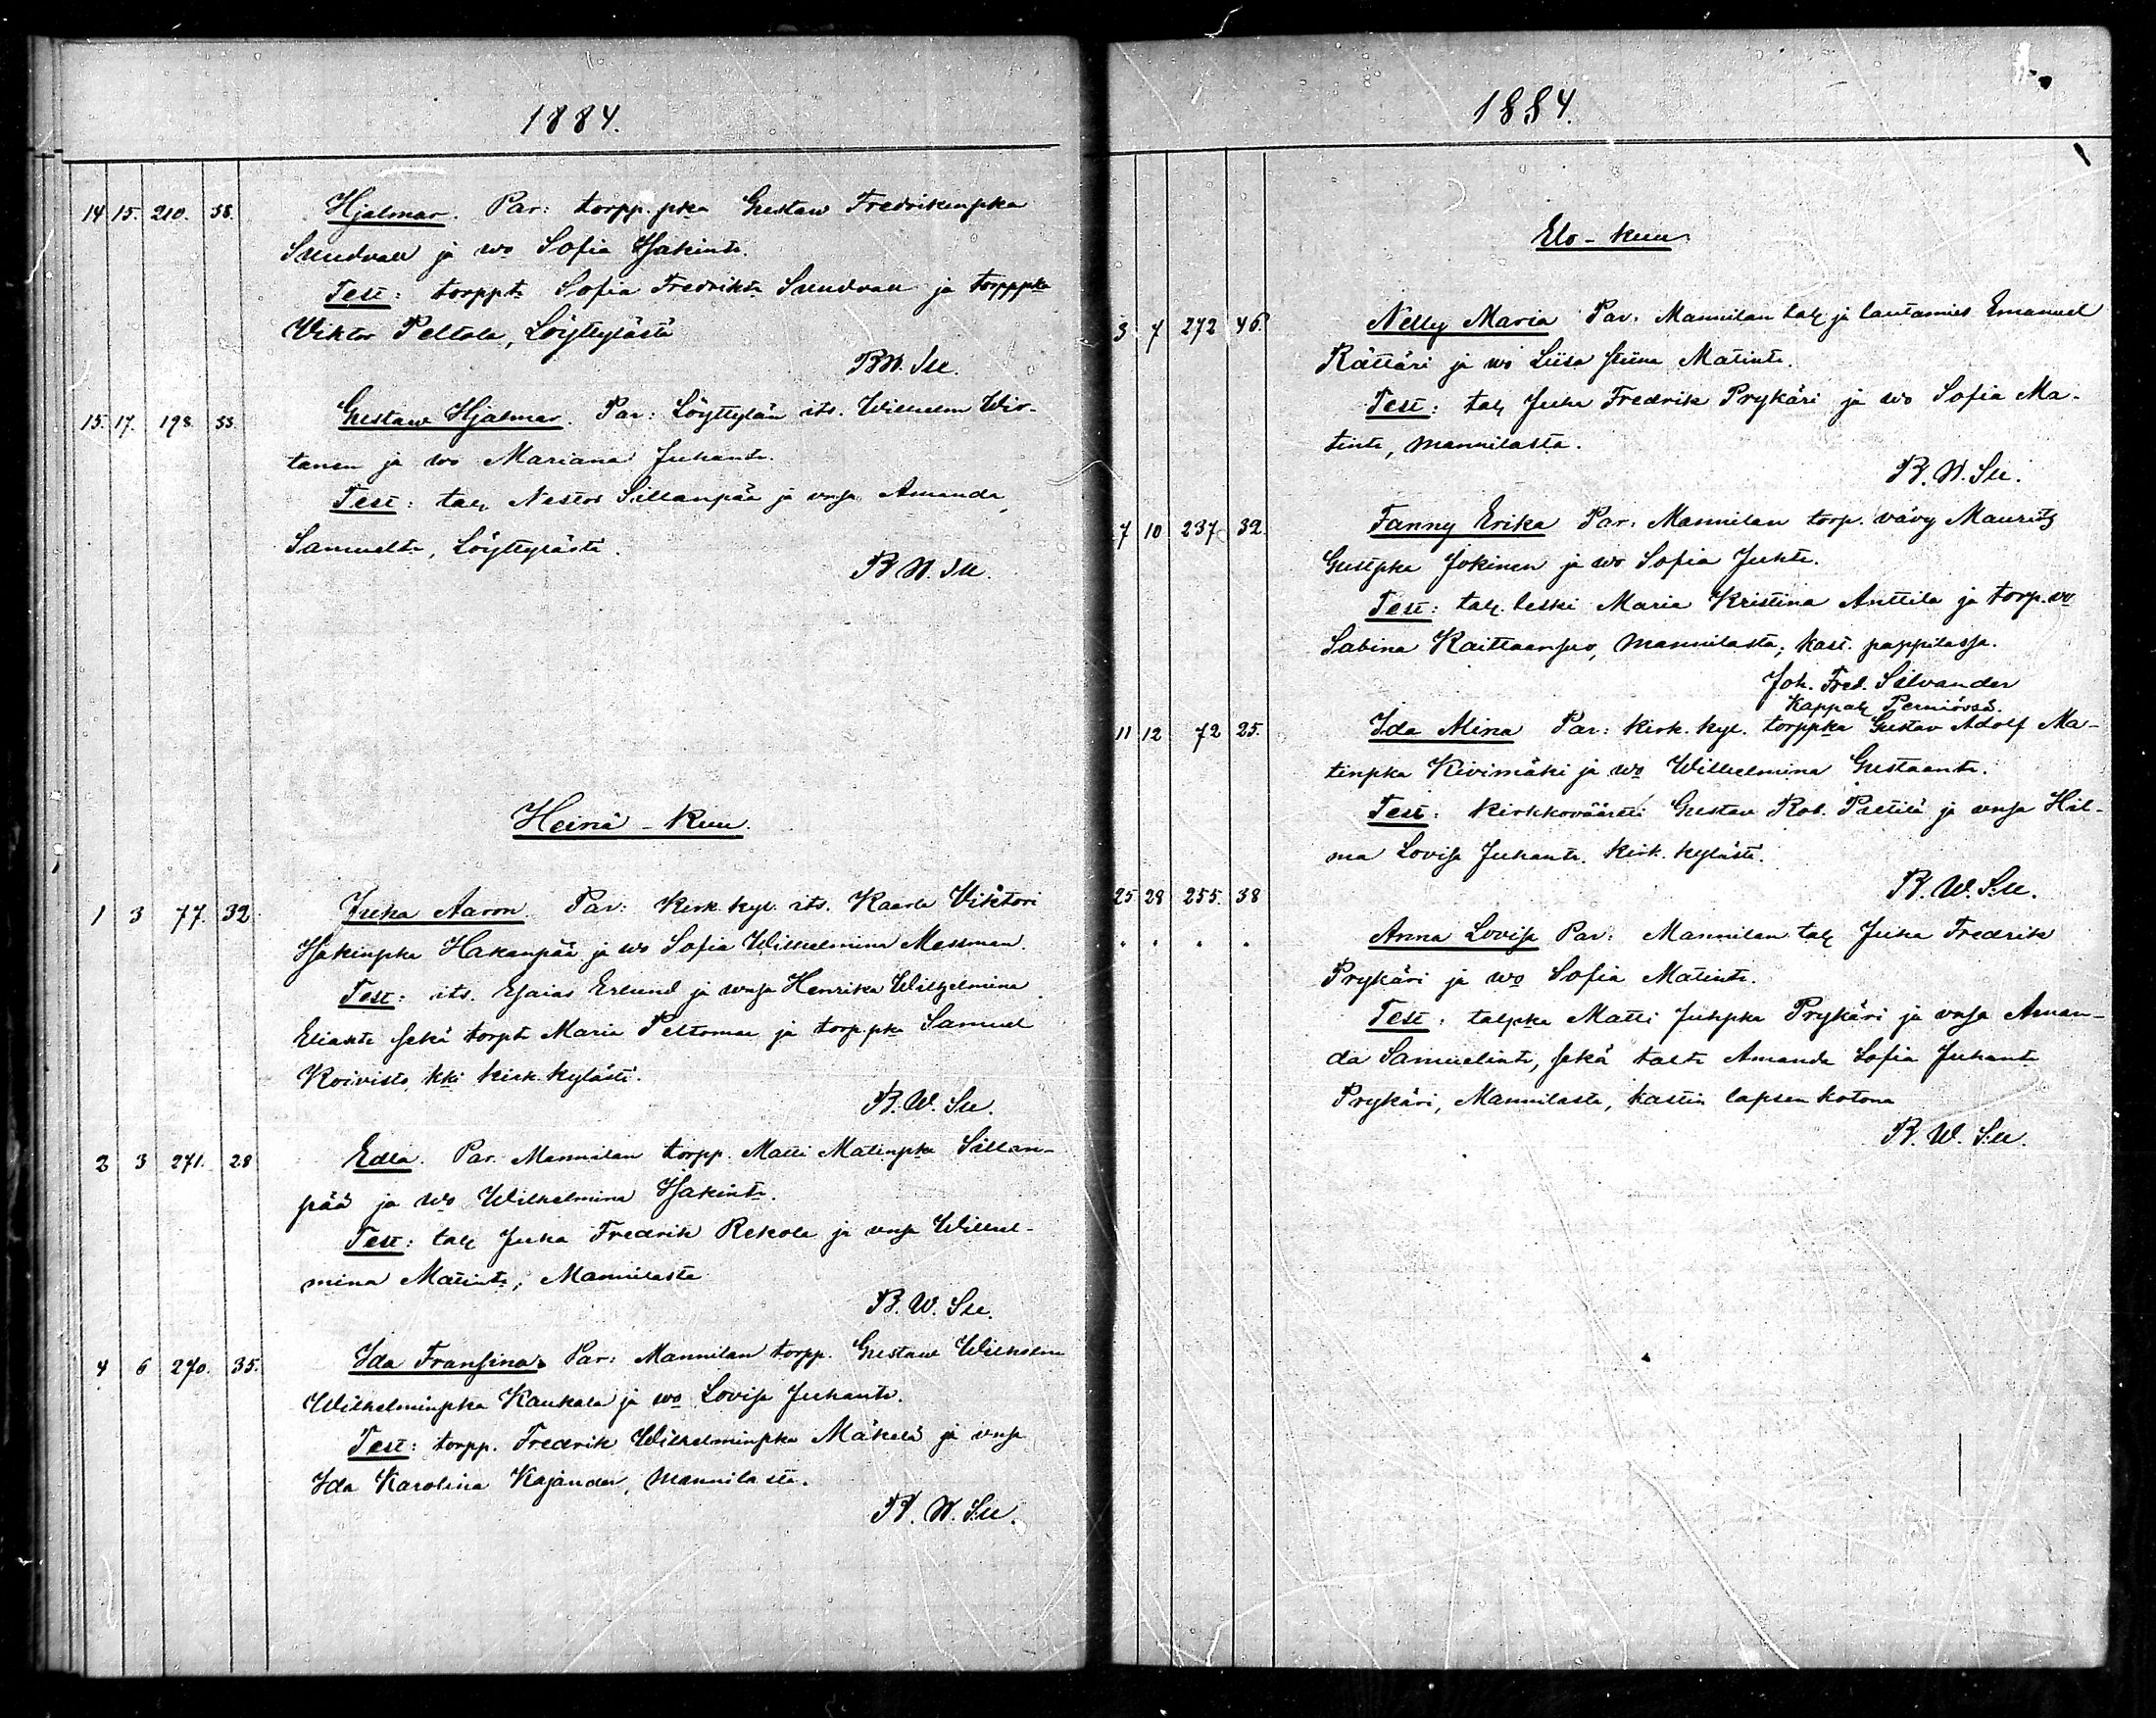 1884.
14 15. 210. 38. Hjalmar. Par: torpp. pka Gustaw Fredrikinpka
Sundvall ja wo Sofia Isakintr.
Test: torpptr Sofia Fredriktr Sundvall ja torpppka
Viktor Peltola, Löyttylästä
B.W. Su.
15. 17. 198. 33. Gustaw Hjalmar. Par: Löyttylän its. Wilhelm Wir-
tanen ja wo Mariana Juhantr.
Test: tal. Nestor Sillanpää ja vnsa Amanda
Samueltr, Löyttylästä.
B.W. Su.
Heinä-Kuu.
1 3 77. 32. Juha Aaron. Par: Kirk. kyl. its. Kaarle Viktori
Isakinpka Hakanpää ja wo Sofia Wilhelmina Messman.
Test: its. Esaias Erlund ja wnsa Henrika Wilhelmina
Eliaktr sekä torptr Maria Peltomaa ja torp.pka Samuel
Koivisto, kki kirk. kylästä.
B.W. Su.
2 3 271. 28 Edla. Par. Mannilan torpp. Matti Matinpka Sillan-
pää ja wo Wilhelmina Isakintr.
Test: tal. Juha Fredrik Rekola ja vnsa Wilhel-
mina Matintr, Mannilasta
B.W. Su.
4 6 270. 35. Ida Fransina. Par: Mannilan torpp. Gustaw Wilhelm
Wilhelminpka Kaukola ja wo Lovisa Juhantr.
Test: torpp. Fredrik Wilhelminpka Mäkelä ja vnsa
Ida Karolina Kajander, Mannilasta.
B.W. Su.
1884.
Elo-kuu.
3 4 272 46. Nelly Maria Par. Mannilan tal. ja lautamies Emanuel
Rättäri ja wo Liisa Stiina Matintr.
Test: tal. Juha Fredrik Prykäri ja wo Sofia Ma-
tintr, Mannilasta.
B.W. Su.
7 10 237 32. Fanny Erika Par. Mannilan torp. vävy Maurits
Gustpka Jokinen ja wo Sofia Juhtr.
Test: tal. leski Maria Kristina Anttila ja torp. vo
Sabina Raittaansuo, Mannilasta; kast. pappilassa.
Joh. Fred. Silvander
Kappal. Perniössä.
11 12 72 25. Ida Alina Par: Kirk. kyl. torppka Gustav Adolf Ma-
tinpka Kivimäki ja wo Wilhelmina Gustaantr.
Test: Kirkkoväärtti Gustav Rob. Prettilä ja vnsa Hil-
ma Lovisa Juhantr. Kirk. kylästä.
B.W. Su.
25 28 255. 38
Anna Lovisa Par: Mannilan tal. Juha Fredrik
Prykäri ja wo Sofia Matintr.
Test: talpka Matti Juhpka Prykäri ja vnsa Aman-
da Samuelintr, sekä taltr Amanda Sofia Juhantr
Prykäri, Mannilasta, kastin lapsen kotona
B.W. Su.